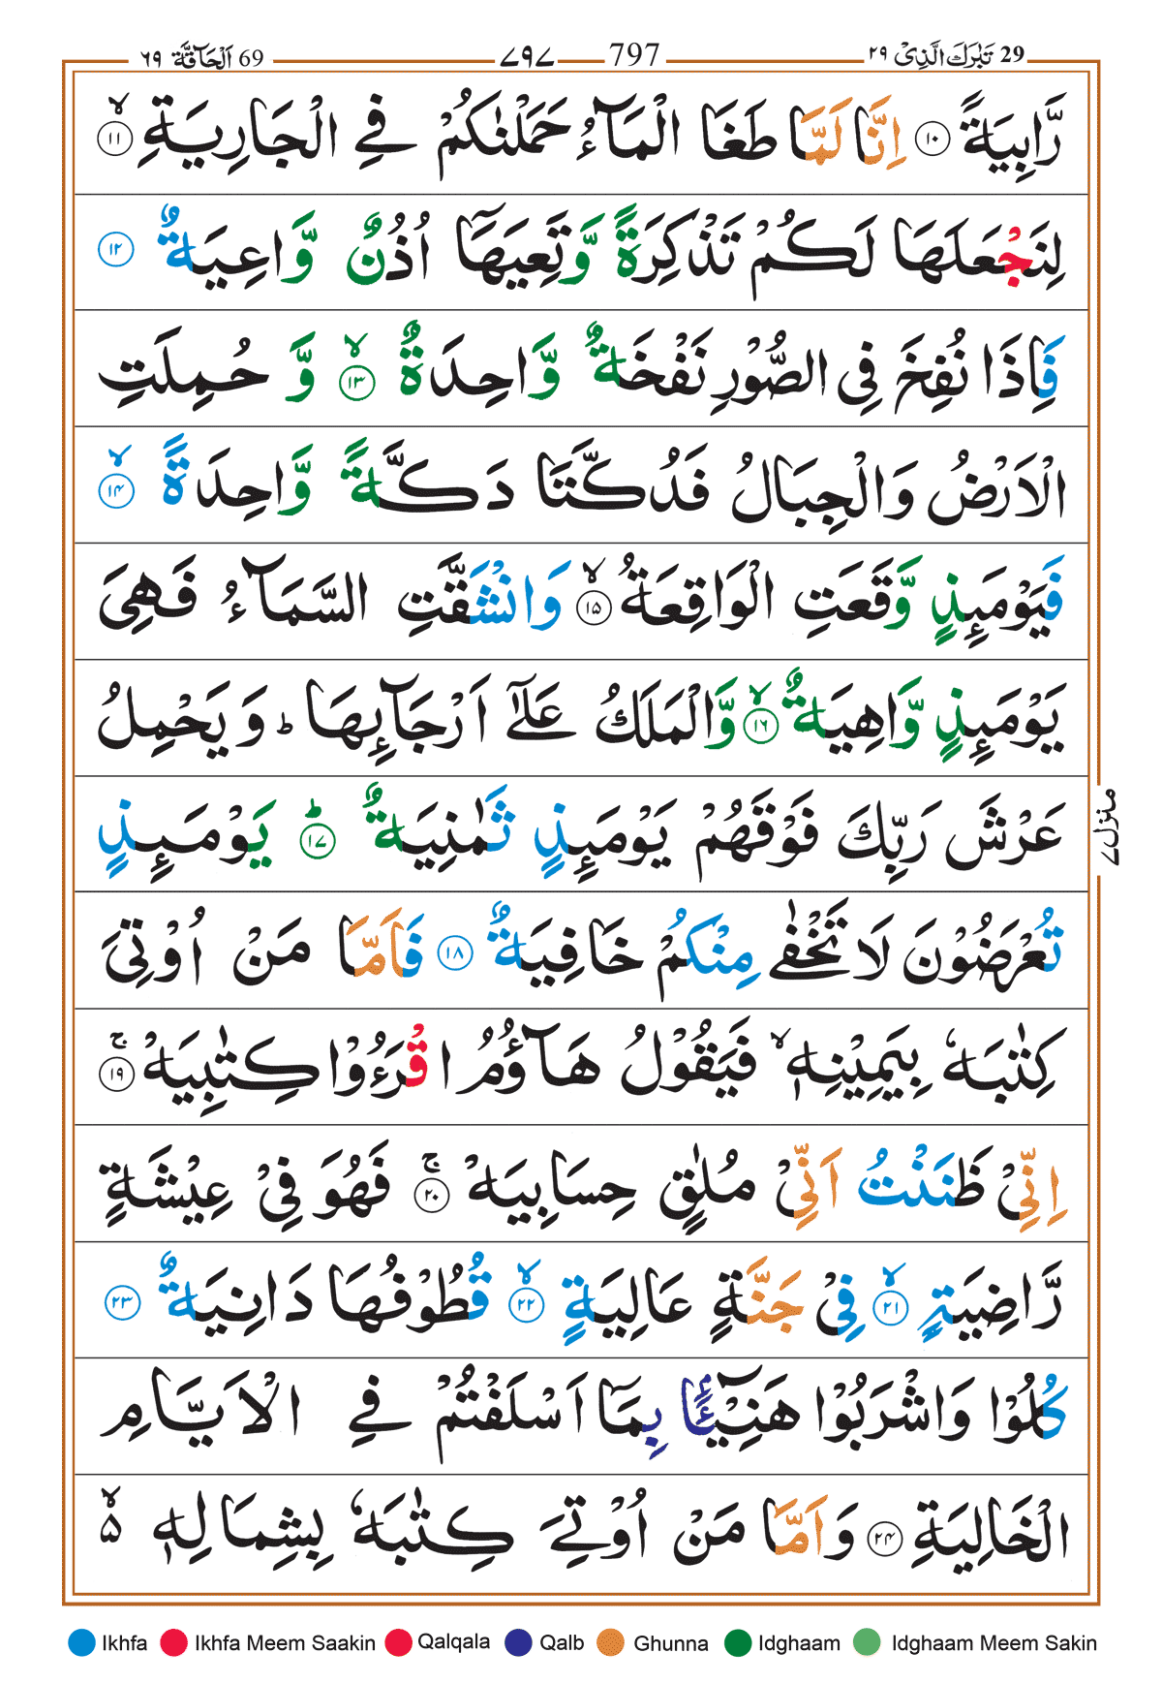 29 تَبٰرَكَ الَّذِىْ ٢٩ 797 ٧٩٧ 69 اَلْحَآقَّة ٦٩
رَّابِيَةً ۝١٠ اِنَّا لَمَّا طَغَا الْمَآءُ حَمَلْنٰكُمْ فِي الْجَارِيَةِ ۝١١ۙ
لِنَجْعَلَهَا لَكُمْ تَذْكِرَةً وَّتَعِيَهَآ اُذُنٌ وَّاعِيَةٌ ۝١٢
فَاِذَا نُفِخَ فِى الصُّوْرِ نَفْخَةٌ وَّاحِدَةٌ ۝١٣ۙ وَّ حُمِلَتِ
الْاَرْضُ وَالْجِبَالُ فَدُكَّتَا دَكَّةً وَّاحِدَةً ۝١٤ۙ
فَيَوْمَىِٕذٍ وَّقَعَتِ الْوَاقِعَةُ ۝١٥ۙ وَانْشَقَّتِ السَّمَآءُ فَهِىَ
يَوْمَىِٕذٍ وَّاهِيَةٌ ۝١٦ۙ وَّالْمَلَكُ عَلٰٓى اَرْجَآىِٕهَا ؕ وَيَحْمِلُ
عَرْشَ رَبِّكَ فَوْقَهُمْ يَوْمَىِٕذٍ ثَمٰنِيَةٌ ۝١٧ؕ يَوْمَىِٕذٍ
تُعْرَضُوْنَ لَا تَخْفٰى مِنْكُمْ خَافِيَةٌ ۝١٨ فَاَمَّا مَنْ اُوْتِىَ
كِتٰبَهٗ بِيَمِيْنِهٖ ۙ فَيَقُوْلُ هَآؤُمُ اقْرَءُوْا كِتٰبِيَهْ ۝١٩ۚ
اِنِّىْ ظَنَنْتُ اَنِّىْ مُلٰقٍ حِسَابِيَهْ ۝٢٠ۚ فَهُوَ فِىْ عِيْشَةٍ
رَّاضِيَةٍ ۝٢١ۙ فِىْ جَنَّةٍ عَالِيَةٍ ۝٢٢ۙ قُطُوْفُهَا دَانِيَةٌ ۝٢٣
كُلُوْا وَاشْرَبُوْا هَنِيْٓـًٔۢا بِمَآ اَسْلَفْتُمْ فِي الْاَيَّامِ
الْخَالِيَةِ ۝٢٤ وَاَمَّا مَنْ اُوْتِيَ كِتٰبَهٗ بِشِمَالِهٖ ۵ۙ
منزل٧
Ikhfa Ikhfa Meem Saakin Qalqala Qalb Ghunna Idghaam Idghaam Meem Sakin